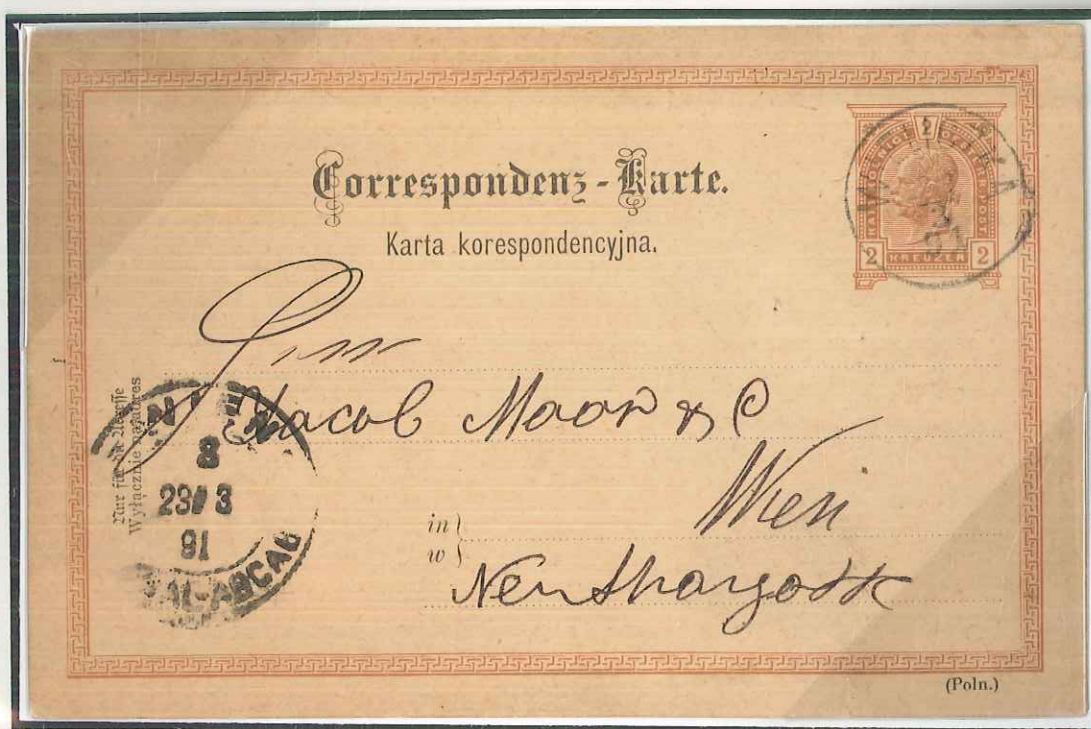 Correspondenz-Karte.
Karta korespondencyjna.
2
KREUZER
2 2
Herrn
Jacob Moor & C
Wien
in
w
Nur für die Adresse
Wyłącznie na adres
WIEN
8
23 3
91
(Poln.)